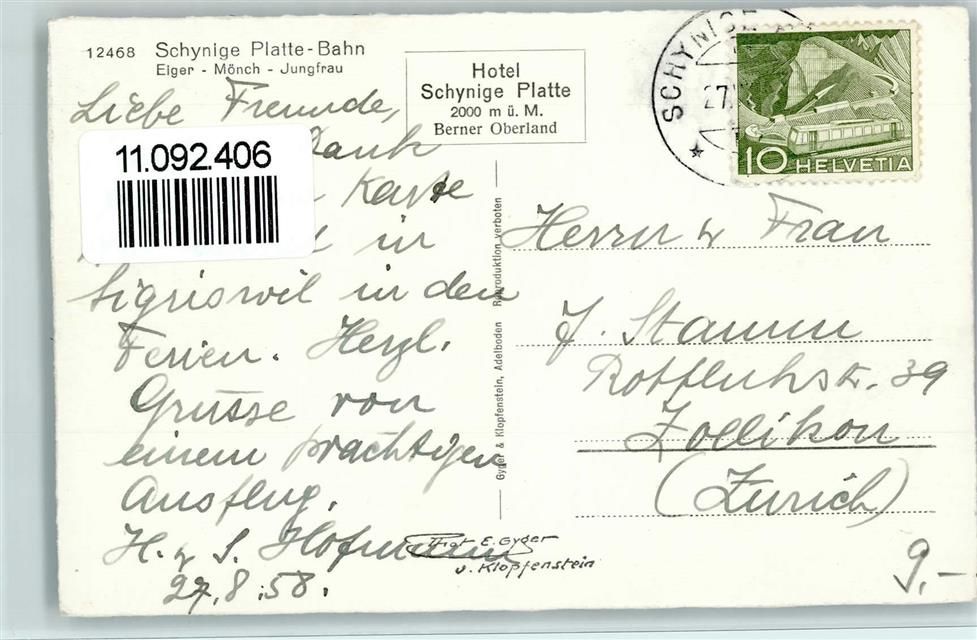 12468 Schynige Platte-Bahn
Eiger - Mönch - Jungfrau
Hotel
Schynige Platte
2000 m ü. M.
Berner Oberland
SCHYNIGE
27
10 HELVETIA
Liebe Freunde,
11.092.406
Dank
Karte
in
Sigriswil in den
Ferien. Herzl.
Grüsse von
einem prächtigen
Ausflug.
H. & S. Hofmann
27.8.58.
Gyger & Klopfenstein, Adelboden Reproduktion verboten
Phot E. Gyger
u. Klopfenstein
Herrn & Frau
J. Stamm
Rotfluhstr. 39
Zollikon
(Zürich)
9.-